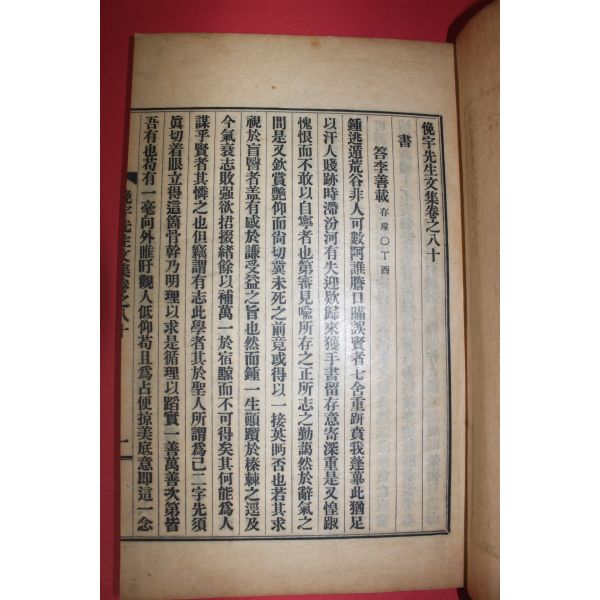 俛宇先生文集卷之八十
書
答李善載 存燁○丁酉
鍾逃遁荒谷非人可數阿誰謄口瞞誤賢者七舍重趼賁我蓬蓽此猶足
以汗人賤跡時滯汾河有失迎欵歸來獲手書留存意寄深重是又惶踧
愧恨而不敢以自寧者也第審見喩所存之正所志之勤藹然於辭氣之
間是又欽賞艶仰而尙切冀未死之前竟或得以一接英眄否也若其求
視於盲瞽者盖有感於謙受益之旨也然而鍾一生顚躓於榛棘之逕及
今氣衰志敗强欲捃掇緖餘以補萬一於宿黥而不可得矣其何能爲人
謀乎賢者其憐之也但竊謂有志此學者其於聖人所謂爲己二字先須
眞切着眼立得這箇骨幹乃明理以求是循理以蹈實一善萬善次第皆
吾有也苟有一毫向外睢盱觀人低仰苟且爲占便掠美底意即這一念
俛宇先生文集卷之八十
一